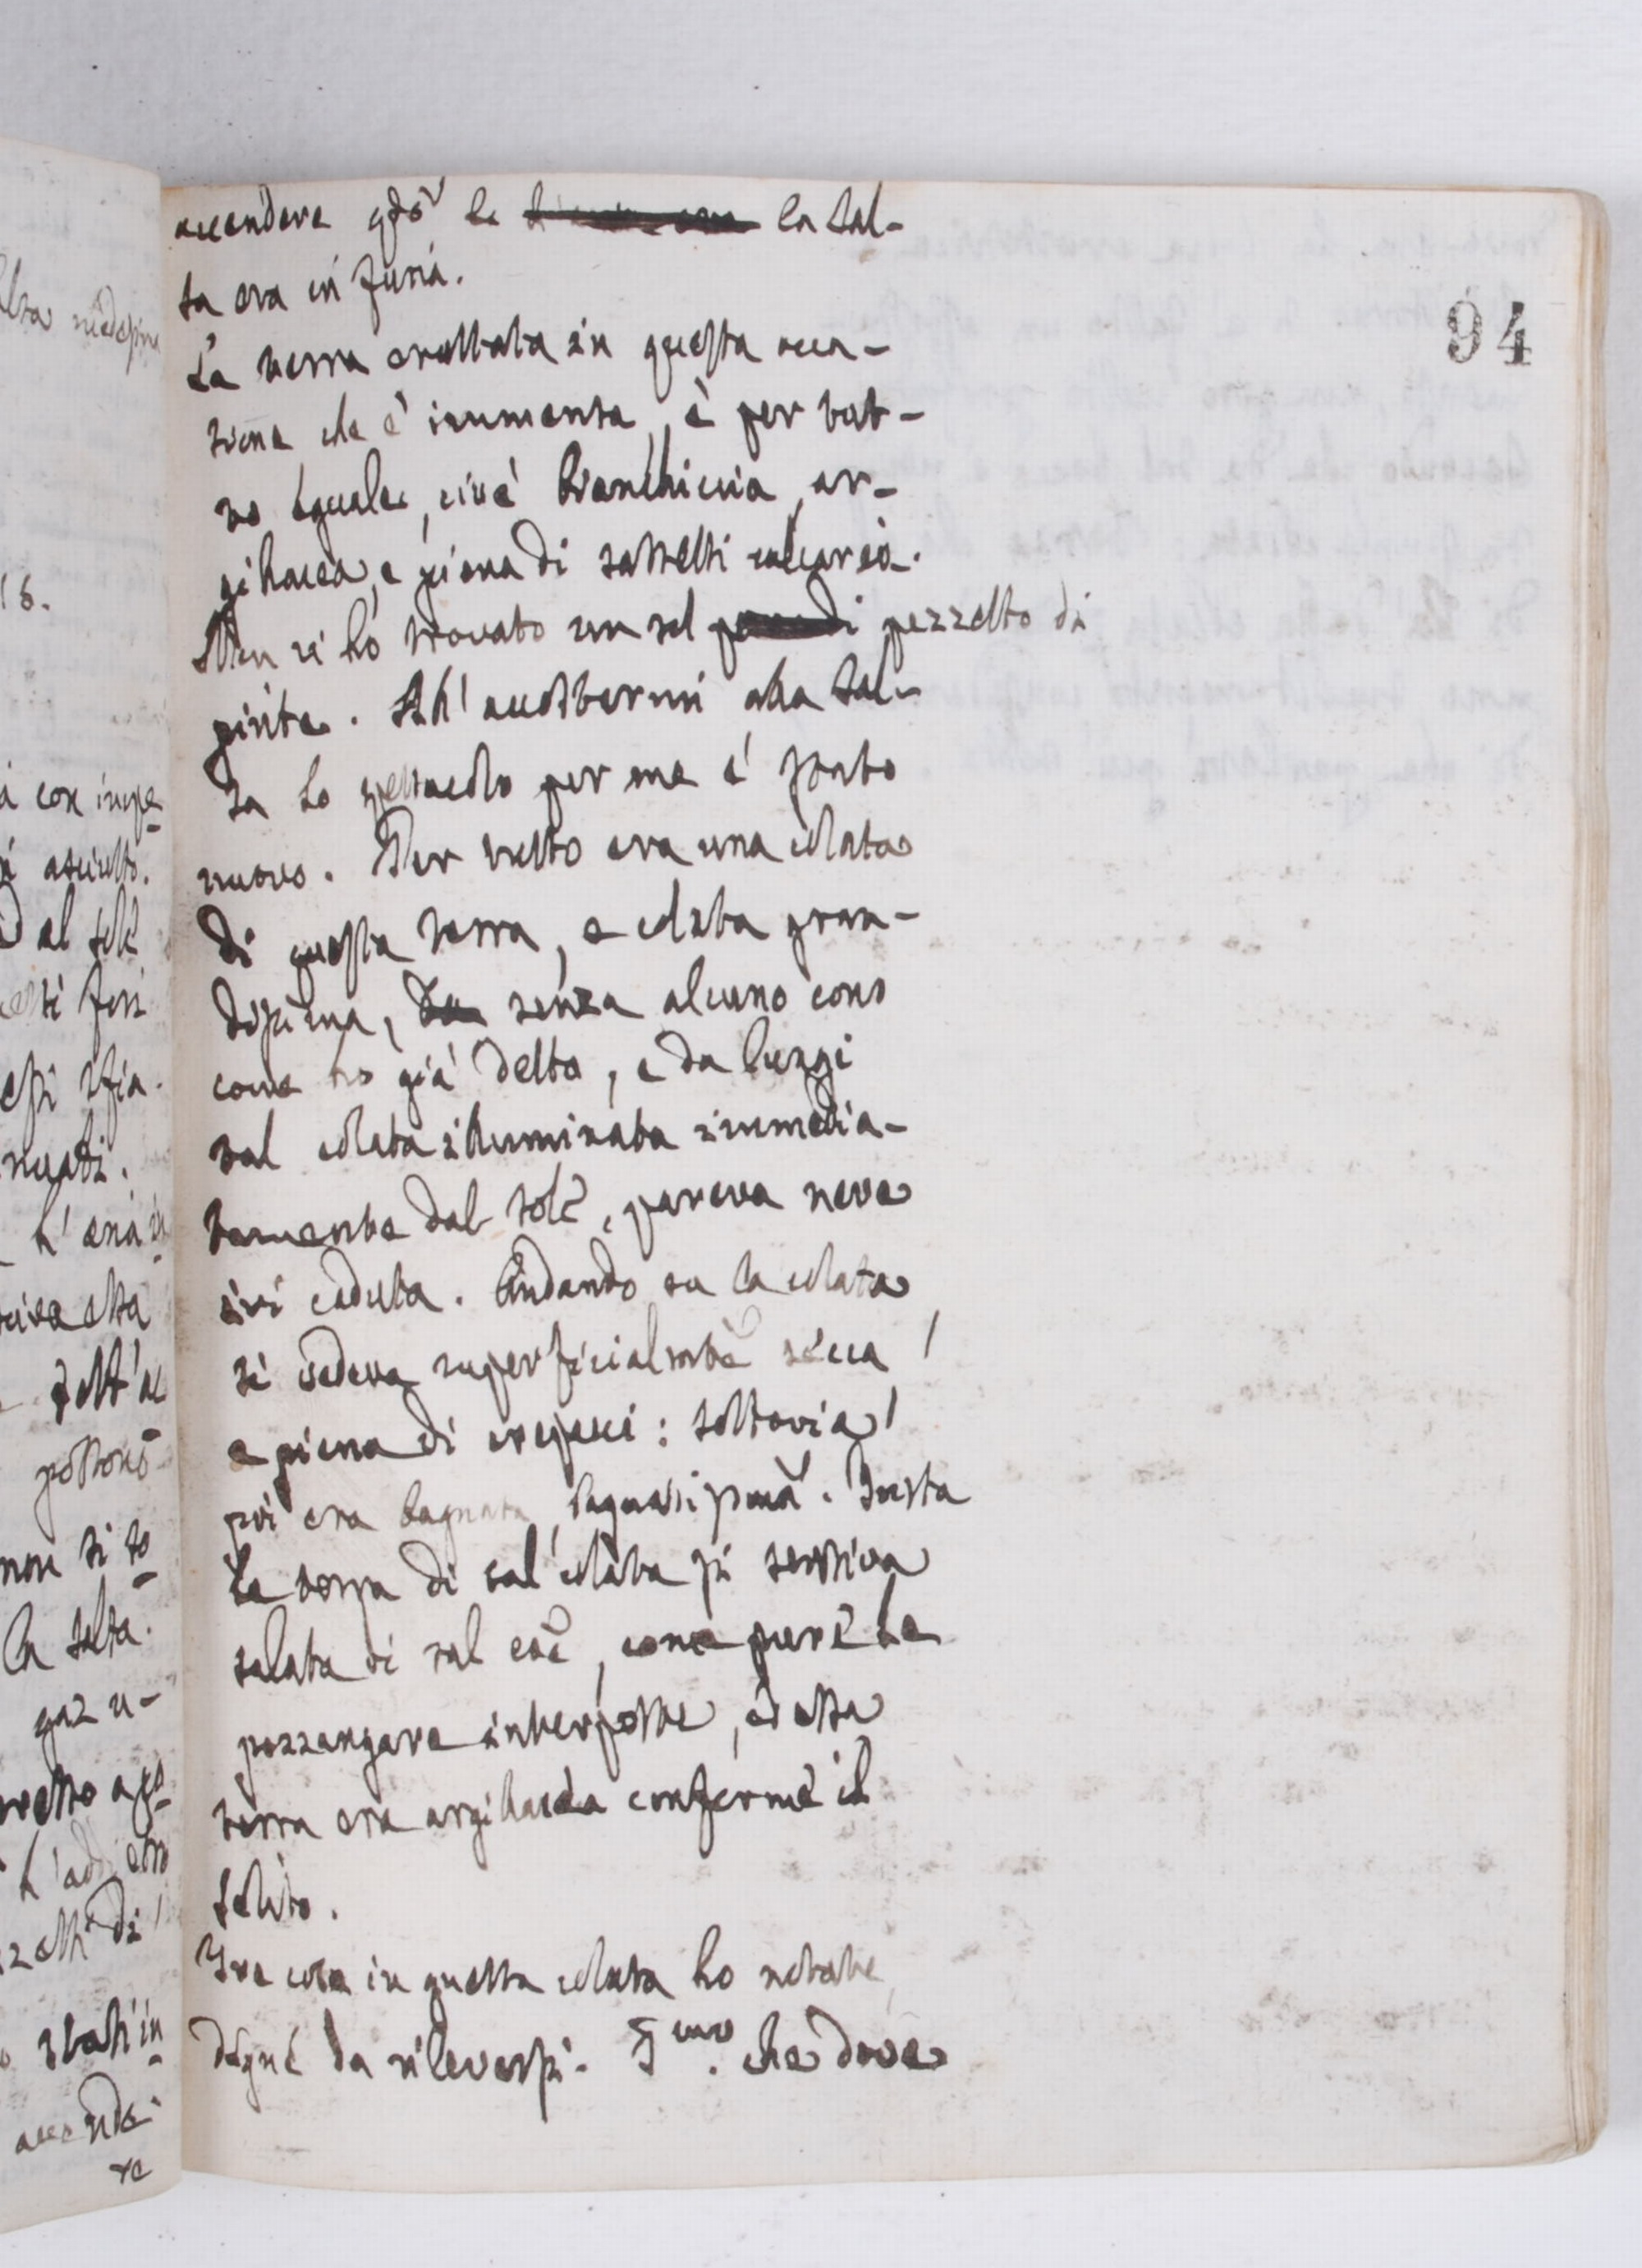 accendere qdo le la Sal-
sa era in furia.
La terra eruttata in questa occa-
sione che è immensa, è per tut-
to eguale, cioè bianchiccia, ar-
gillacea, e piena di sassetti calcarei.
Non ci ho trovato un sol pezzetto di
pirite. All' accostarmi alla Sal-
sa lo spettacolo per me è stato
nuovo. Per tutto era una colata
di questa terra, e colata gran-
dissima, senza alcuno cono
come ho già detto, e da lungi
tal colata illuminata immedia-
tamente dal sole, pareva neve
ivi caduta. Andando su la colata
si vedeva superficialmte secca
e piena di crepacci: sottovia
poi era bagnata, bagnatissima.
la terra di tal colata si sentiva
salata di sal coe, come pure le
pozzangare interposte, ed essa
terra era argillacea conforme il
solito.
Tre cose in questa colata ho notate
degne da rilevarsi. che dove
94